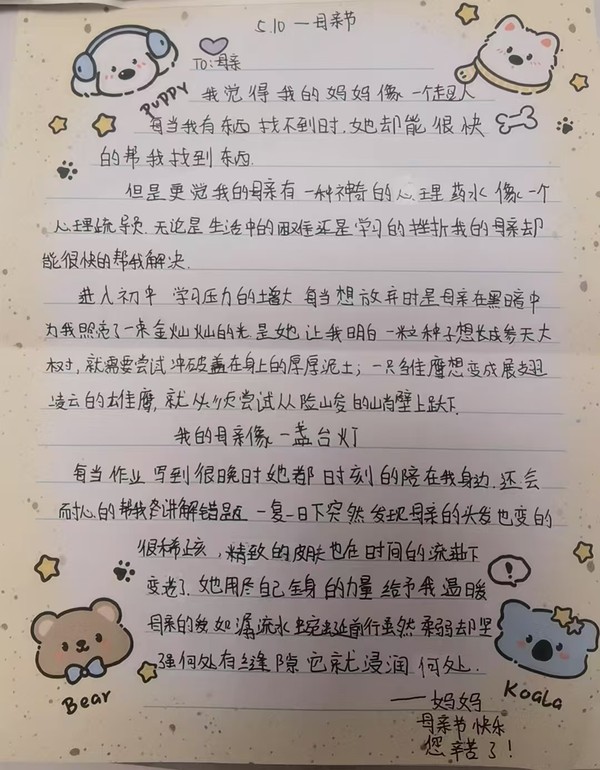 5.10 — 母亲节
TO:母亲
PUPPY
我觉得我的妈妈像一个超人
每当我有东西找不到时.她却能很快
的帮我找到东西.
但是更觉我的母亲有一种神奇的心理药水像一个
心理疏导员.无论是生活中的困难还是学习的挫折我的母亲却
能很快的帮我解决.
进入初中 学习压力的增大 每当想放弃时是母亲在黑暗中
为我照亮了一条金灿灿的光是她让我明白一粒种子想长成参天大
树,就需要尝试冲破盖在身上的厚厚泥土;一只雏鹰想变成展翅
凌云的雄鹰,就必须尝试从险峻的山峭壁上跃下.
我的母亲像一盏台灯
每当作业写到很晚时她都时刻的陪在我身边.还会
耐心的帮我讲解错题 一复一日下突然发现母亲的头发也变的
很稀疏,精致的皮肤也在时间的流逝下
变老了.她用尽自己全身的力量给予我温暖
母亲的爱如潺流水蜿蜒前行虽然柔弱却坚
强何处有缝隙它就浸润何处.
——妈妈
母亲节快乐
您辛苦了!
Bear
KoaLa